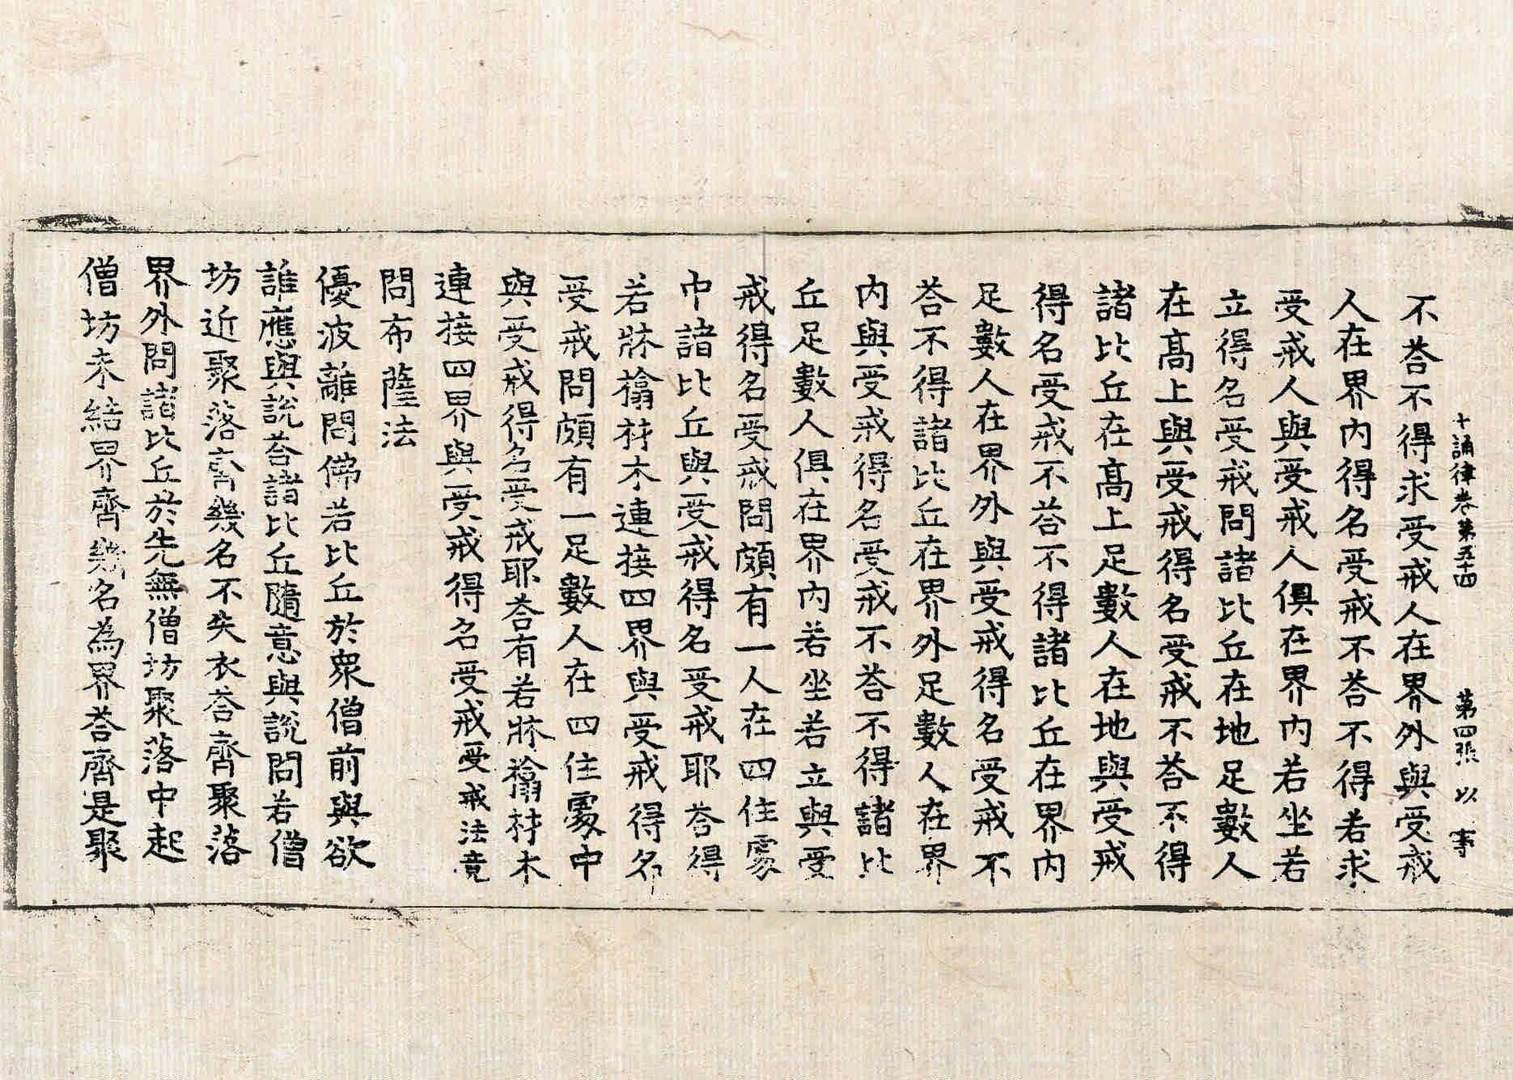 十誦律卷第五十四　第四張　以　事
不荅不得求受戒人在界外與受戒
人在界內得名受戒不荅不得若求
受戒人與受戒人俱在界內若坐若
立得名受戒問諸比丘在地足數人
在高上與受戒得名受戒不荅不得
諸比丘在高上足數人在地與受戒
得名受戒不荅不得諸比丘在界內
足數人在界外與受戒得名受戒不
荅不得諸比丘在界外足數人在界
內與受戒得名受戒不荅不得諸比
丘足數人俱在界內若坐若立與受
戒得名受戒問頗有一人在四住處
中諸比丘與受戒得名受戒耶荅得
若牀榻材木連接四界與受戒得名
受戒問頗有一足數人在四住處中
與受戒得名受戒耶荅有若牀榻材木
連接四界與受戒得名受戒受戒法竟
問布薩法
優波離問佛若比丘於衆僧前與欲
誰應與說荅諸比丘隨意與說問若僧
坊近聚落齊幾名不失衣荅齊聚落
界外問諸比丘於先無僧坊聚落中起
僧坊未結界齊幾名為界荅齊是聚